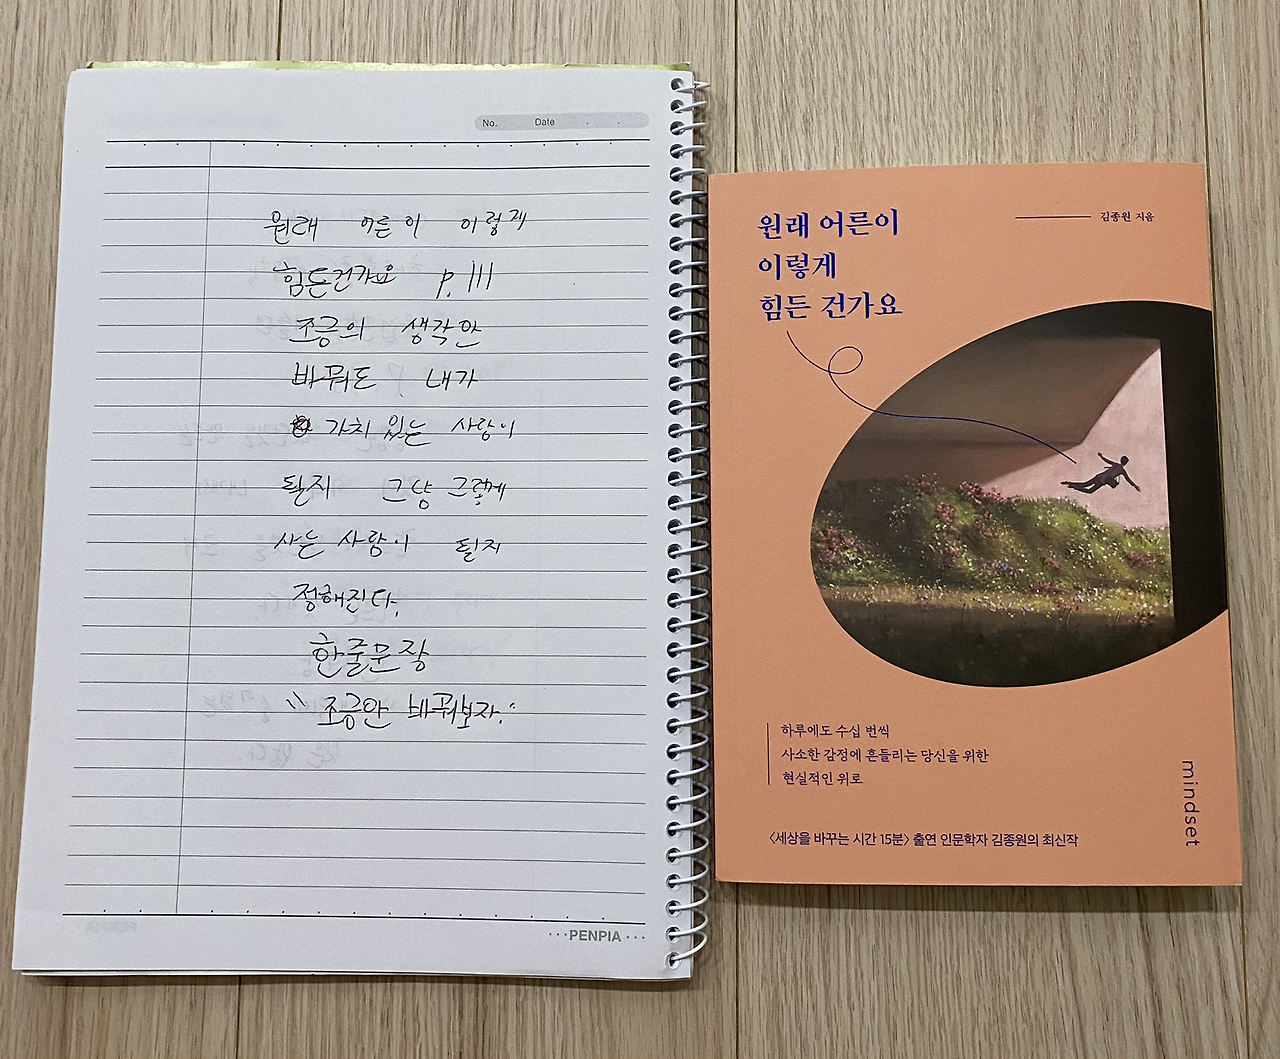 No. Date . .
원래 어른이 이렇게
힘든건가요 p.111
조금의 생각만
바꿔도 내가
가치 있는 사람이
될지 그냥 그렇게
사는 사람이 될지
정해진다.
한줄문장
"조금만 바꿔보자."
···PENPIA···
원래 어른이
이렇게
힘든 건가요
김종원 지음
하루에도 수십 번씩
사소한 감정에 흔들리는 당신을 위한
현실적인 위로
mindset
<세상을 바꾸는 시간 15분> 출연 인문학자 김종원의 최신작